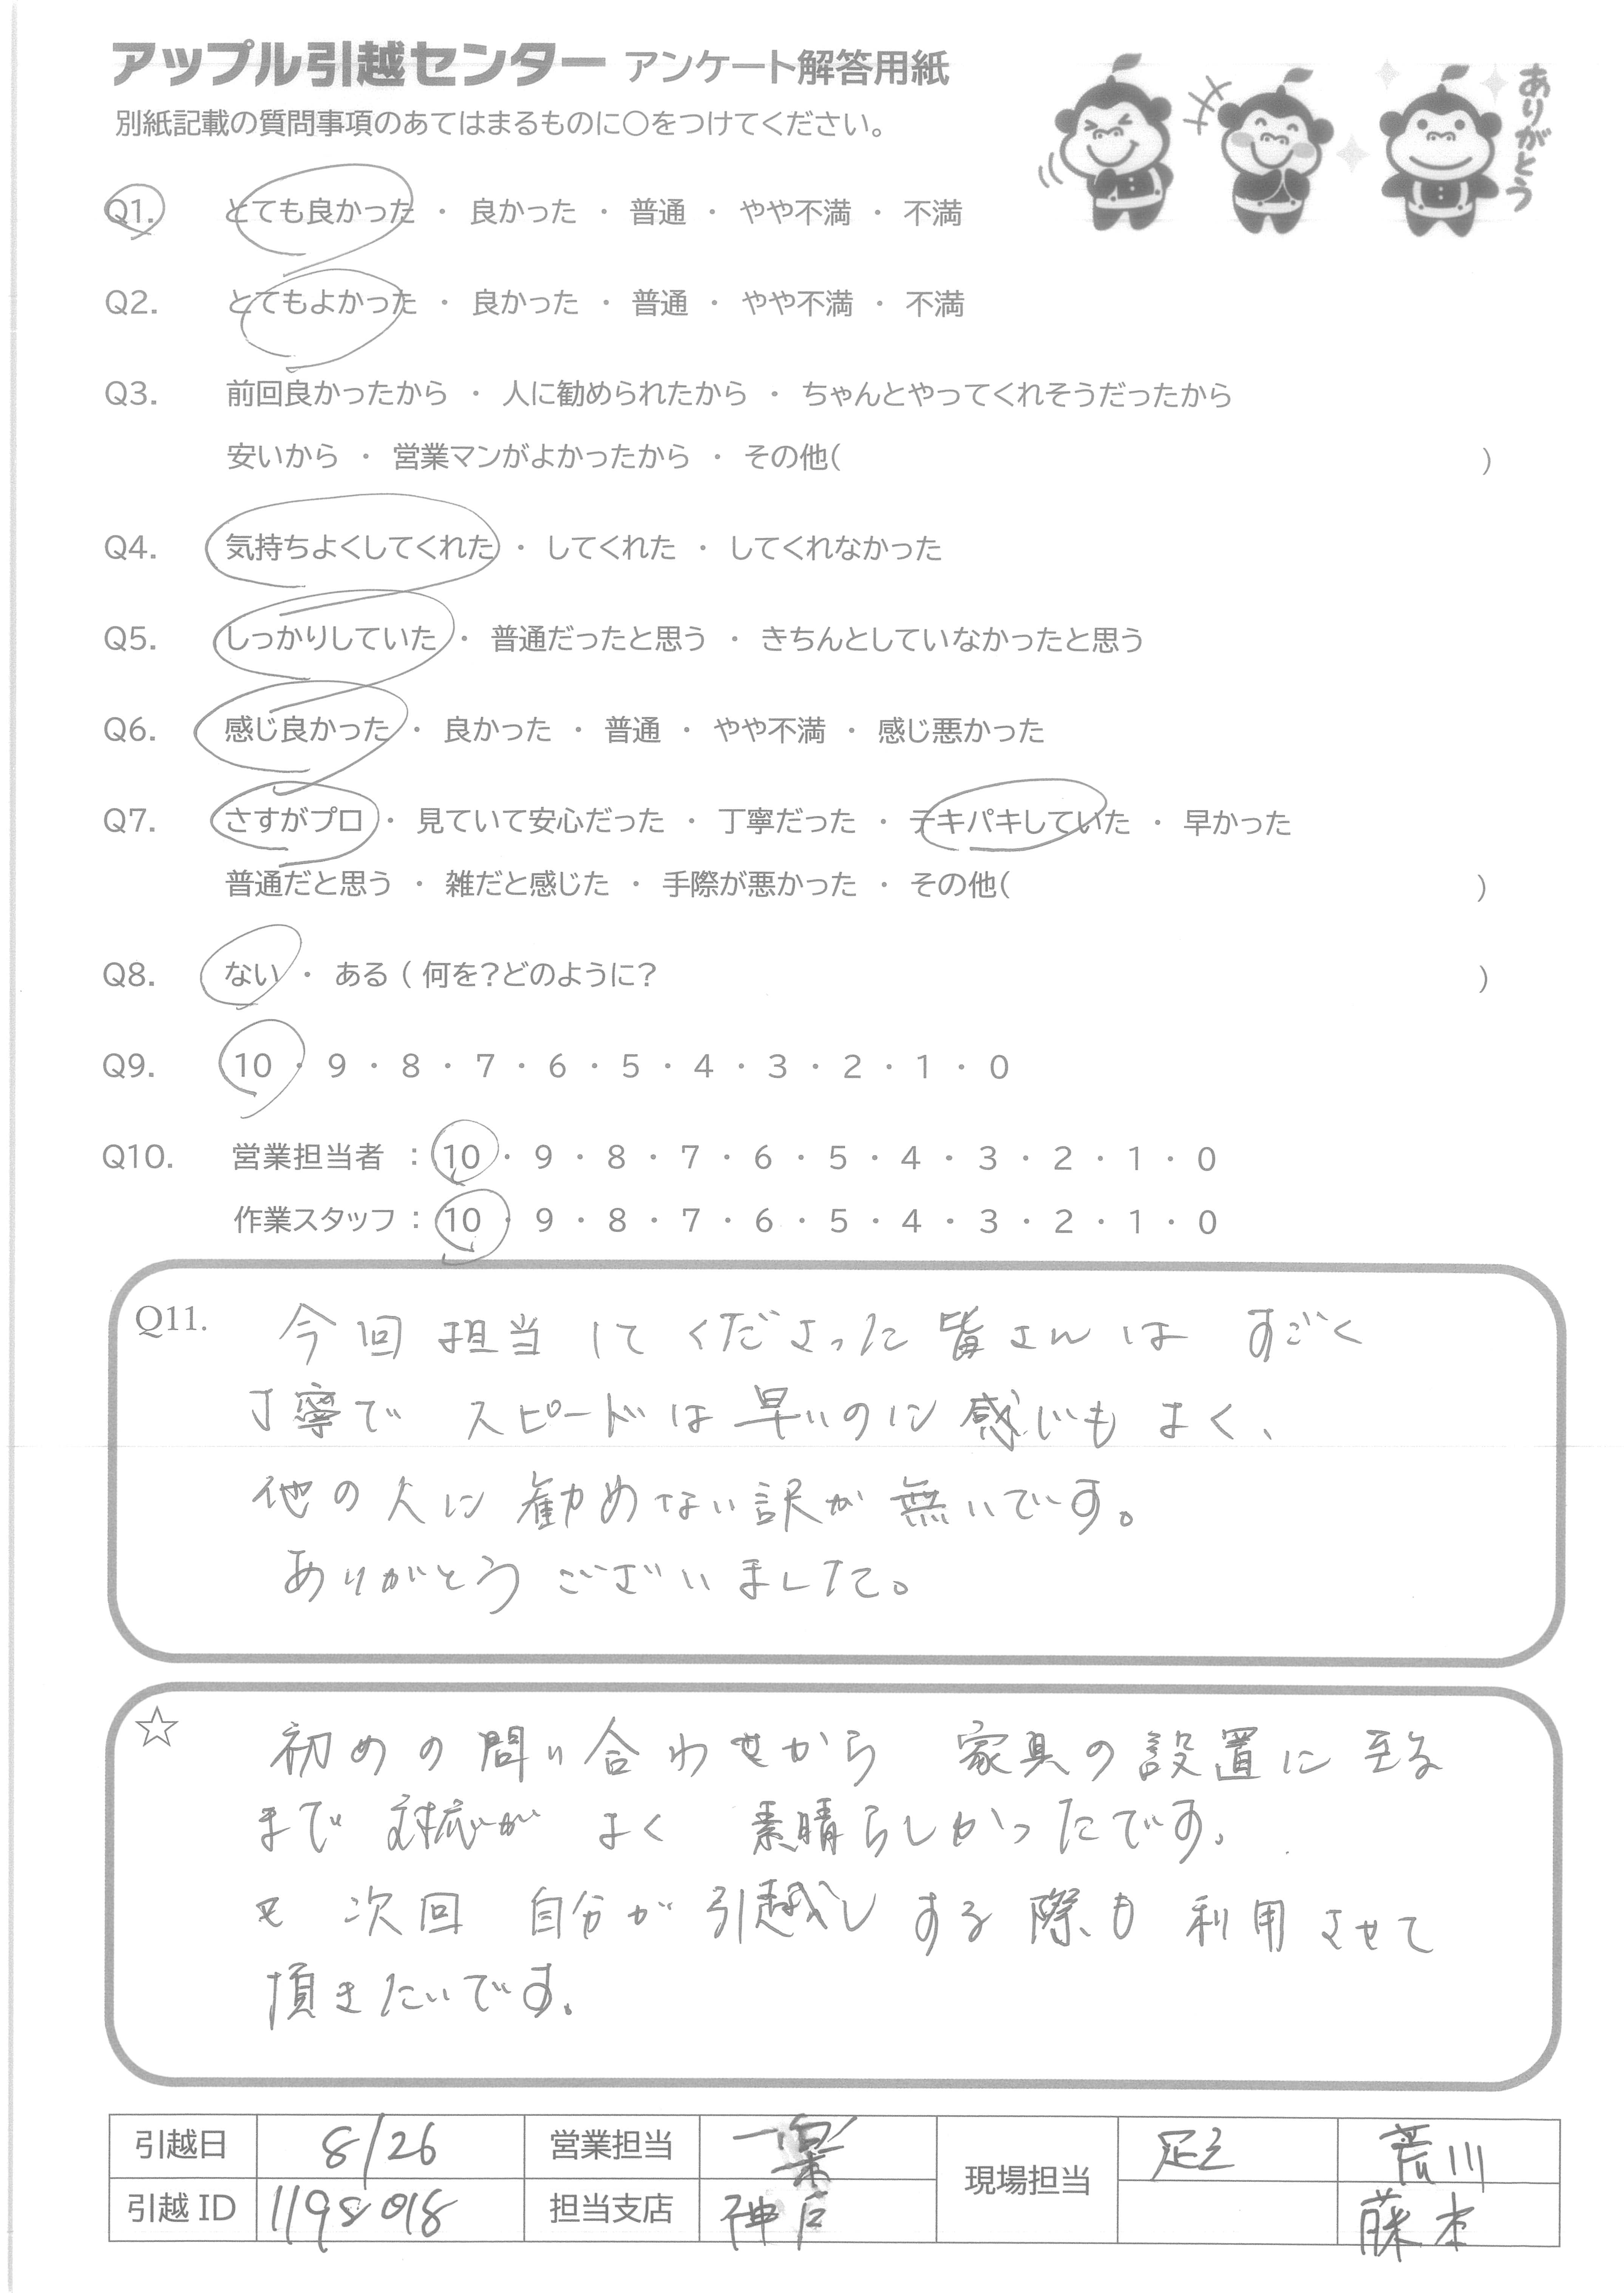 アップル引越センター アンケート解答用紙
別紙記載の質問事項のあてはまるものに○をつけてください。
ありがとう
Q1. とても良かった ・ 良かった ・ 普通 ・ やや不満 ・ 不満
Q2. とてもよかった ・ 良かった ・ 普通 ・ やや不満 ・ 不満
Q3. 前回良かったから ・ 人に勧められたから ・ ちゃんとやってくれそうだったから
安いから ・ 営業マンがよかったから ・ その他( )
Q4. 気持ちよくしてくれた ・ してくれた ・ してくれなかった
Q5. しっかりしていた ・ 普通だったと思う ・ きちんとしていなかったと思う
Q6. 感じ良かった ・ 良かった ・ 普通 ・ やや不満 ・ 感じ悪かった
Q7. さすがプロ ・ 見ていて安心だった ・ 丁寧だった ・ テキパキしていた ・ 早かった
普通だと思う ・ 雑だと感じた ・ 手際が悪かった ・ その他( )
Q8. ない ・ ある ( 何を?どのように? )
Q9. 10 ・ 9 ・ 8 ・ 7 ・ 6 ・ 5 ・ 4 ・ 3 ・ 2 ・ 1 ・ 0
Q10. 営業担当者 : 10 ・ 9 ・ 8 ・ 7 ・ 6 ・ 5 ・ 4 ・ 3 ・ 2 ・ 1 ・ 0
作業スタッフ : 10 ・ 9 ・ 8 ・ 7 ・ 6 ・ 5 ・ 4 ・ 3 ・ 2 ・ 1 ・ 0
Q11. 今回 担当 して くださった 皆さんは すごく
丁寧で スピードは 早いのに 感じも よく、
他の人に 勧めない訳が 無いです。
ありがとう ございました。
☆ 初めの 問い合わせから 家具の設置に至る
まで 対応が よく 素晴らしかったです。
次回 自分が 引越し する際も 利用させて
頂きたいです。
引越日 8/26 営業担当 現場担当 足立 荒川
引越ID 1198018 担当支店 神戸 藤本